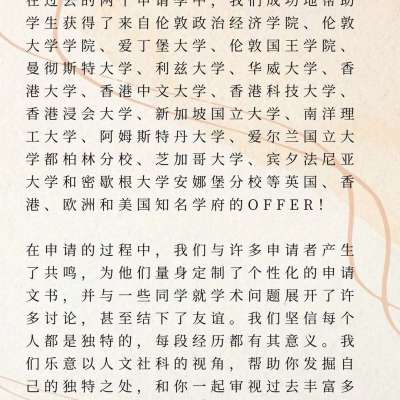 在过去的两个申请季中，我们成功地帮助
学生获得了来自伦敦政治经济学院、伦敦
大学学院、爱丁堡大学、伦敦国王学院、
曼彻斯特大学、利兹大学、华威大学、香
港大学、香港中文大学、香港科技大学、
香港浸会大学、新加坡国立大学、南洋理
工大学、阿姆斯特丹大学、爱尔兰国立大
学都柏林分校、芝加哥大学、宾夕法尼亚
大学和密歇根大学安娜堡分校等英国、香
港、欧洲和美国知名学府的OFFER！
在申请的过程中，我们与许多申请者产生
了共鸣，为他们量身定制了个性化的申请
文书，并与一些同学就学术问题展开了许
多讨论，甚至结下了友谊。我们坚信每个
人都是独特的，每段经历都有其意义。我
们乐意以人文社科的视角，帮助你发掘自
己的独特之处，和你一起审视过去丰富多